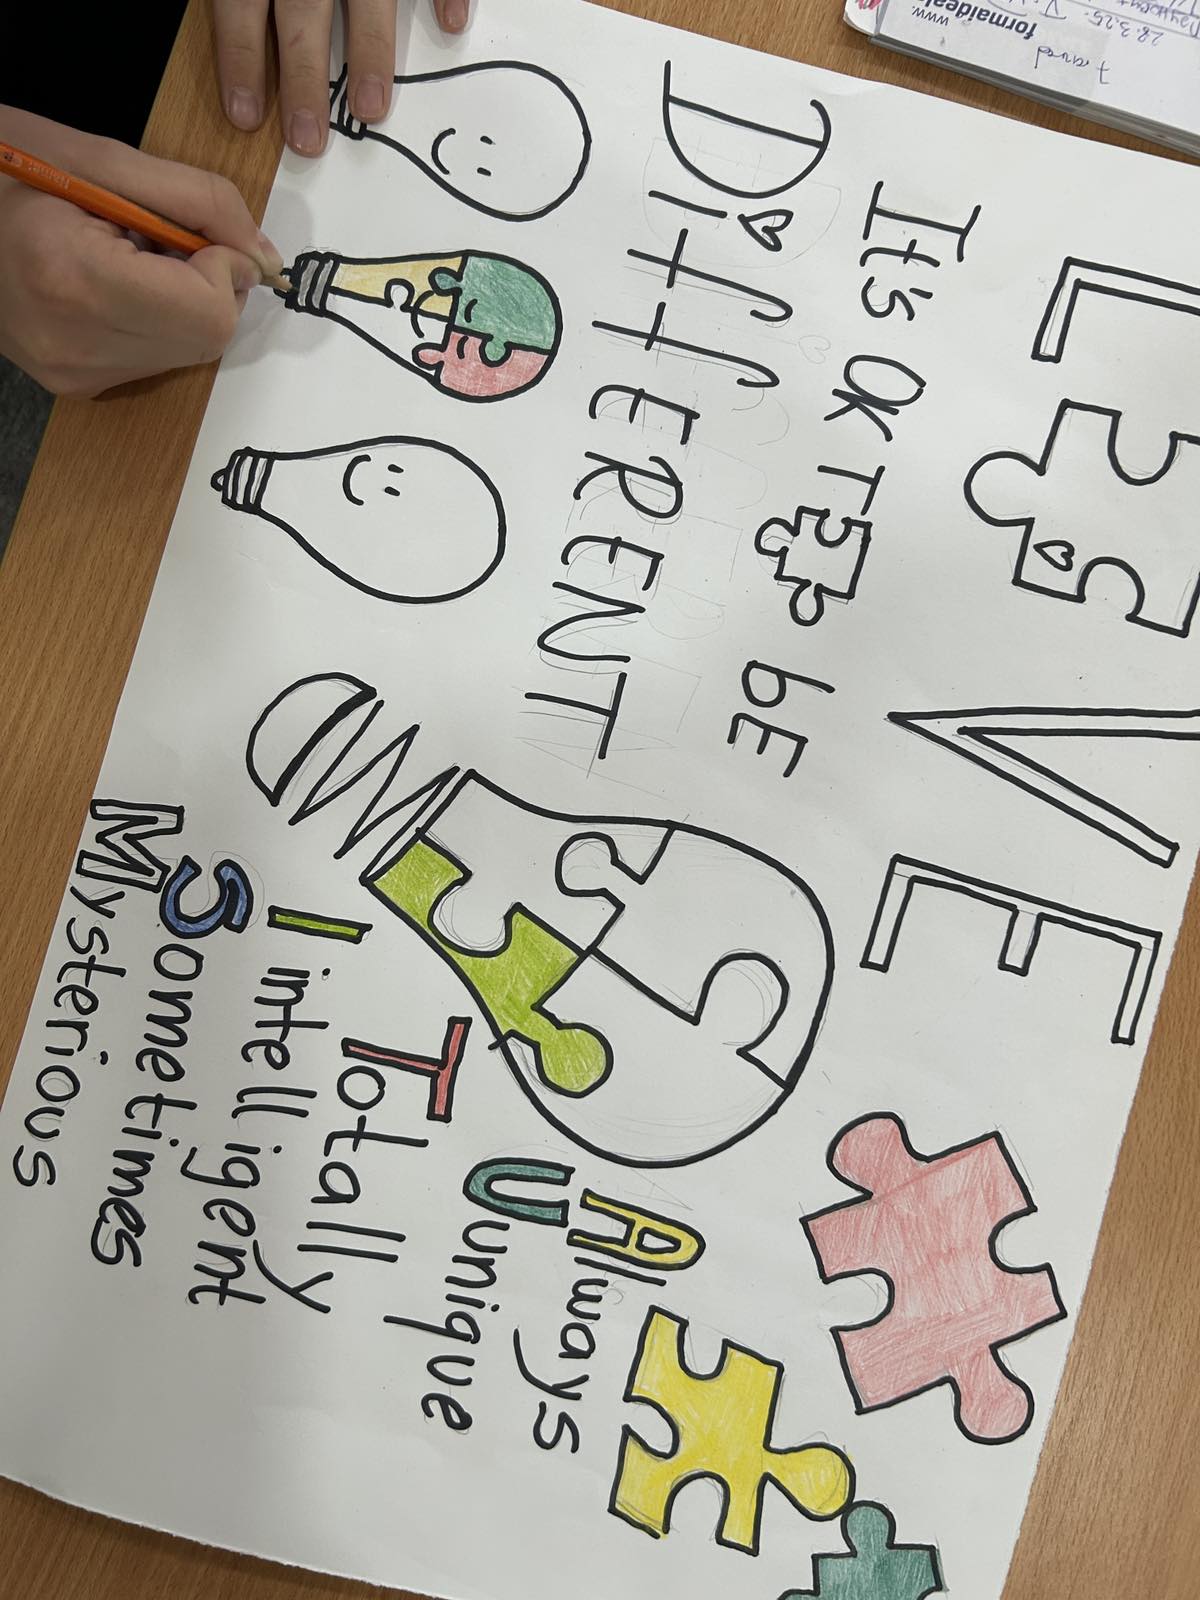 LOVE
It's OK TO bE
DiffERENT
Always
Uunique
Totally
Iintelligent
Sometimes
Mysterious
www.
formaideale
28.3.25.